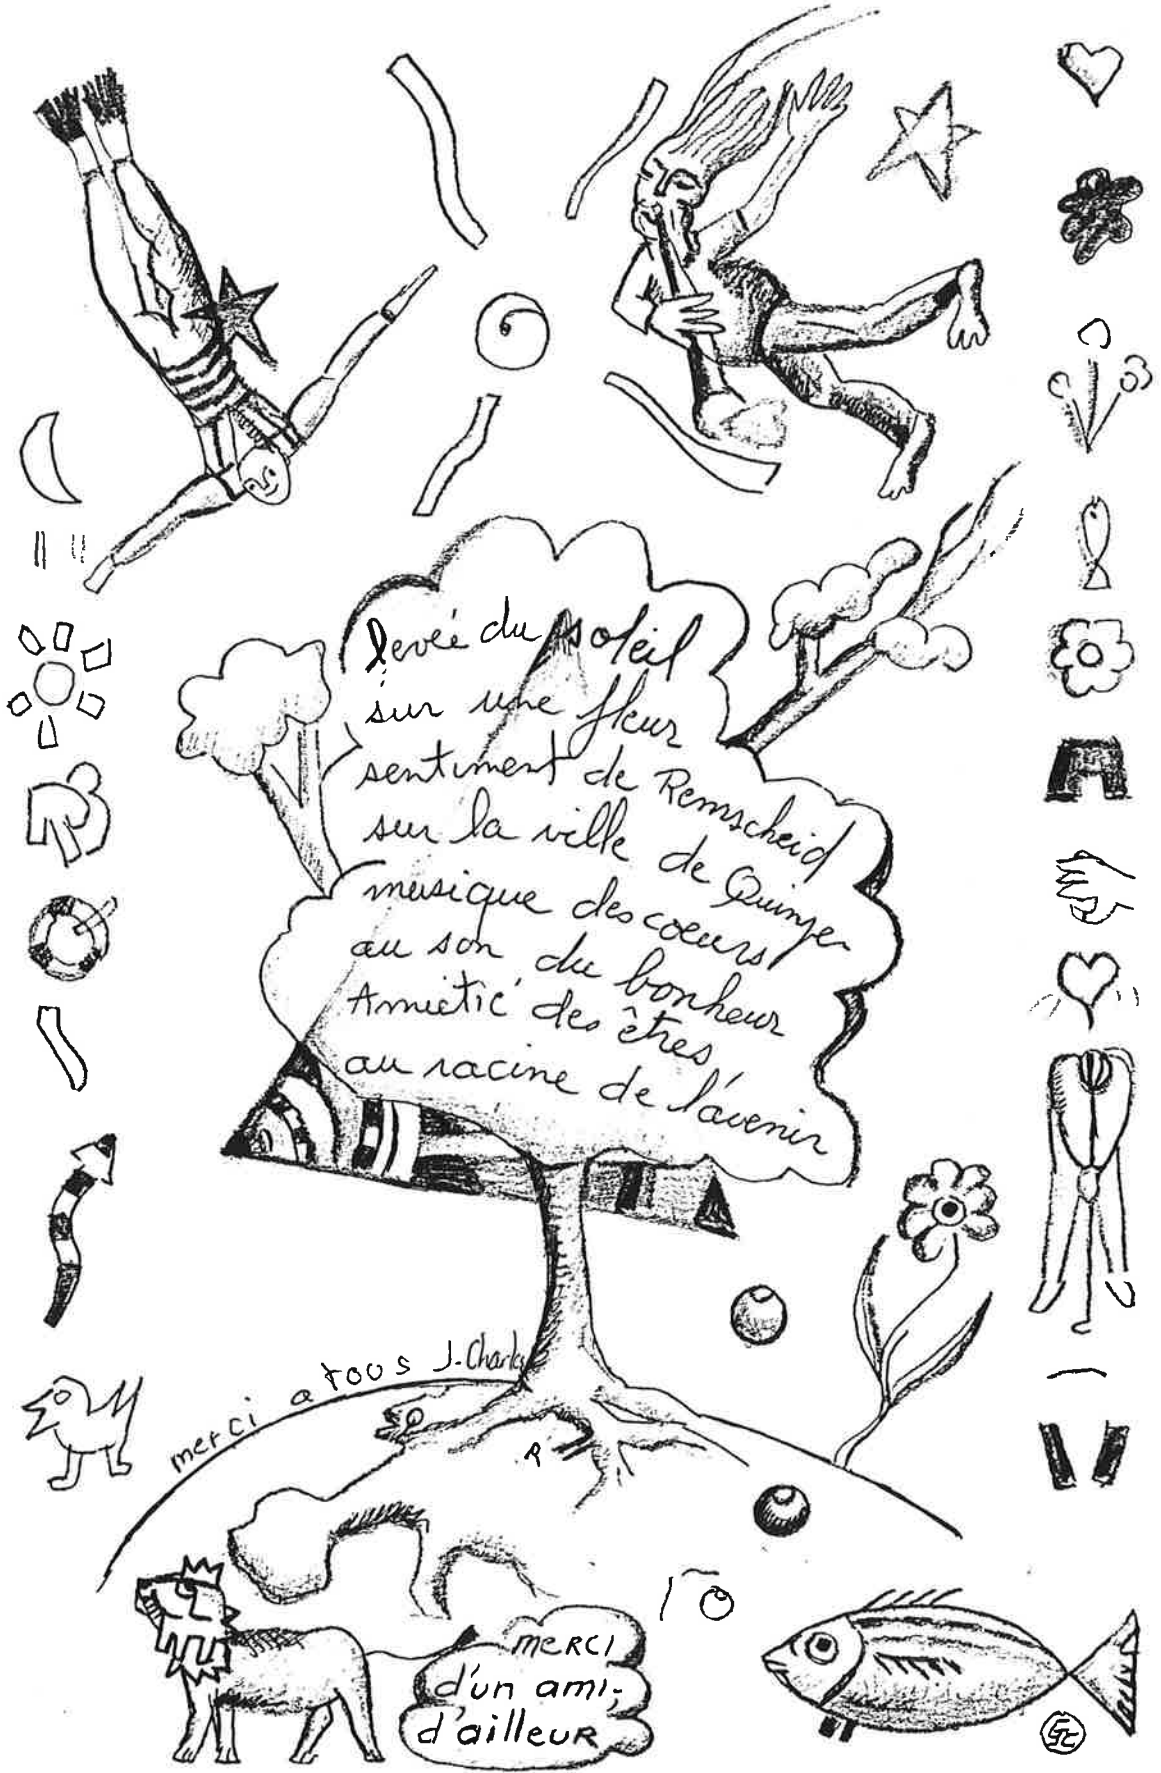 levée du soleil
sur une fleur
sentiment de Remscheid
sur la ville de Quimper
musique des coeurs
au son du bonheur
Amietié des êtres
au racine de l'avenir
merci a tous J. Charles
R
merci
d'un ami,
d'ailleur